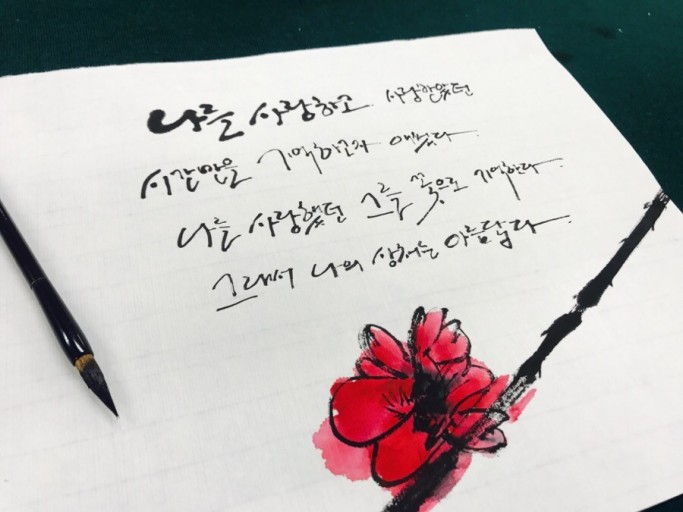 나를 사랑하고 사랑한 있던
시간만을 기억하고자 애썼다.
나를 사랑했던 그를 꽃으로 기억한다.
그래서 나의 상처는 아름답다.